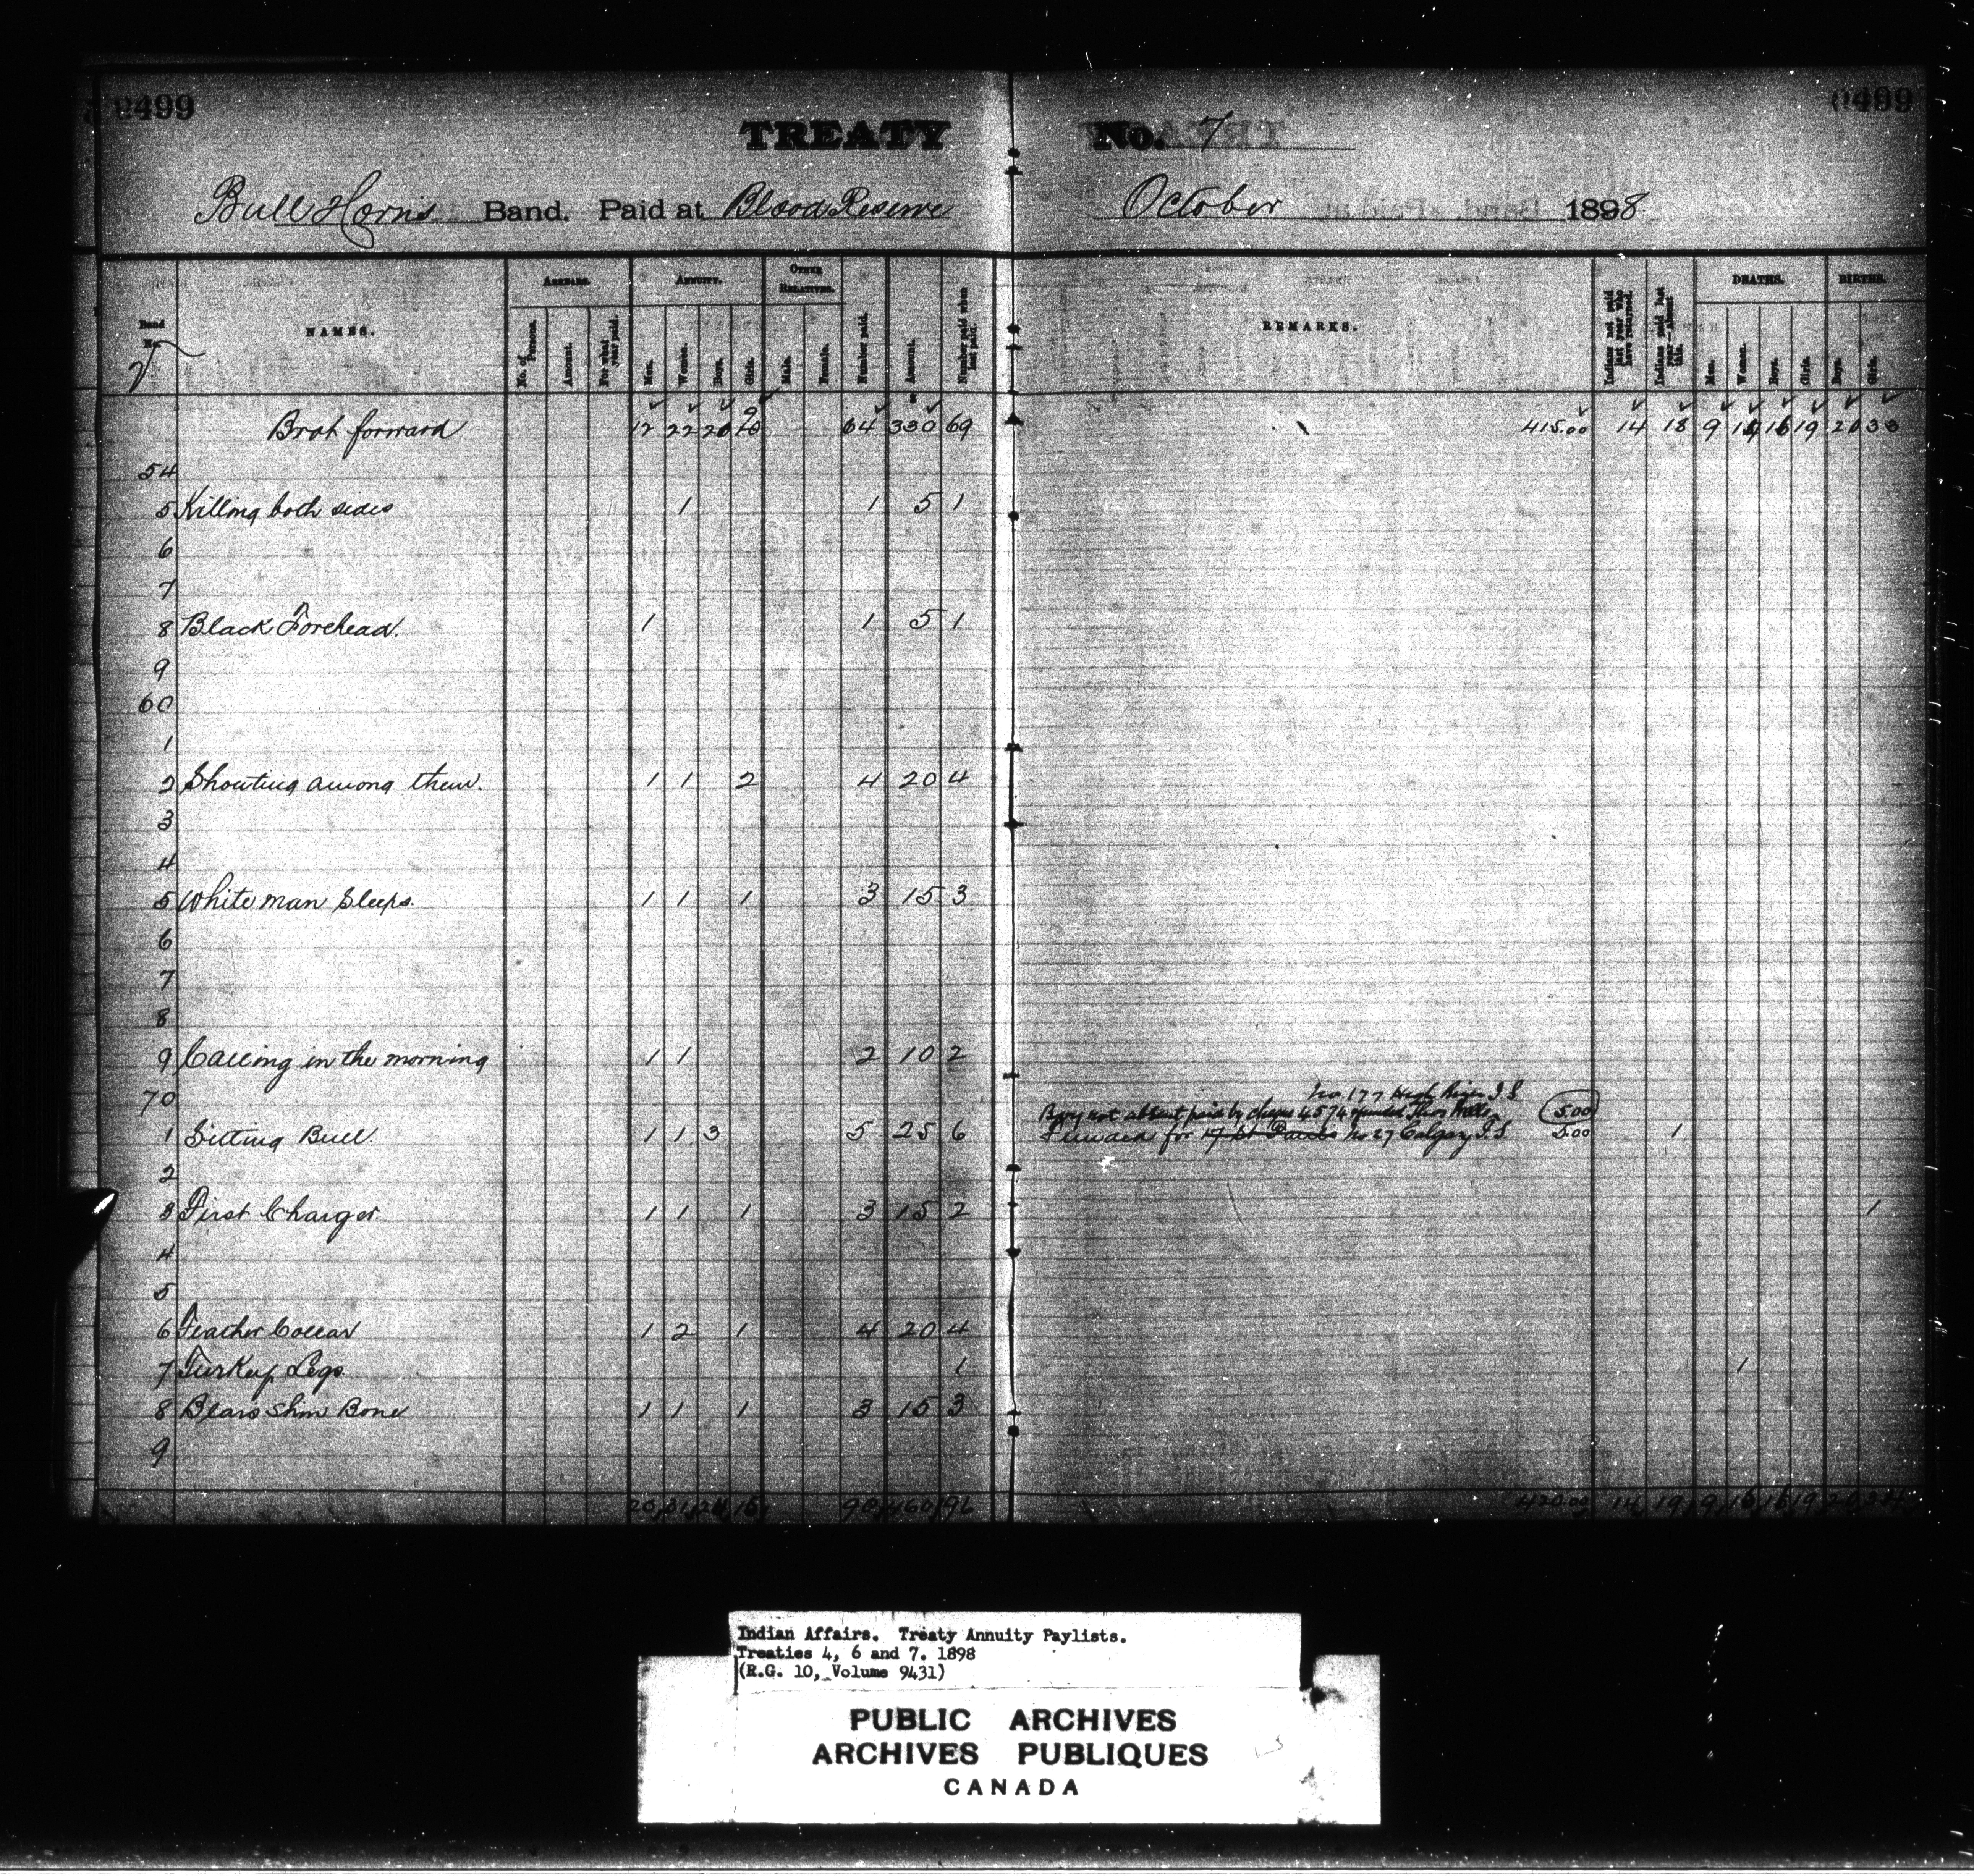 0499 0499
TREATY No. 7
Bull Horn's Band. Paid at Blood Reserve October 1898
Band No. NAMES. ARREARS. ANNUITY. OTHER RELATIVES. Number paid. Amount. Number paid when last paid. REMARKS. Indians not paid last year who have returned. Indians paid last year absent this. DEATHS. BIRTHS.
No. of Persons. Amount. For what year paid. Men. Women. Boys. Girls. Male. Female. Men. Women. Boys. Girls. Boys. Girls.
Brot forward 12 22 20 64 330 69 415.00 14 18 9 16 19
54
5 Killing both sides 1 1 5 1
6
7
8 Black Forehead. 1 1 5 1
9
60
1
2 Shouting among them. 1 1 2 4 20 4
3
4
5 White man Sleeps. 1 1 1 3 15 3
6
7
8
9 Calling in the morning 1 1 2 10 2
70 No 177 High River I.S
Boy not absent paid by cheque 4574 5.00
1 Sitting Bull. 1 1 3 5 25 6 for 17 St Pauls No 27 Calgary I.S. 5.00 1
2
3 First Charger 1 1 1 3 15 2 1
4
5
6 Feather Collar 1 2 1 4 20 4
7 Turkey Legs 1 1
8 Bears Shin Bone 1 1 1 3 15 3
9
20 31 90 460 96 420.00 14 19 9 16 16 19 34
Indian Affairs. Treaty Annuity Paylists.
Treaties 4, 6 and 7. 1898
(R.G. 10, Volume 9431)
PUBLIC ARCHIVES
ARCHIVES PUBLIQUES
CANADA